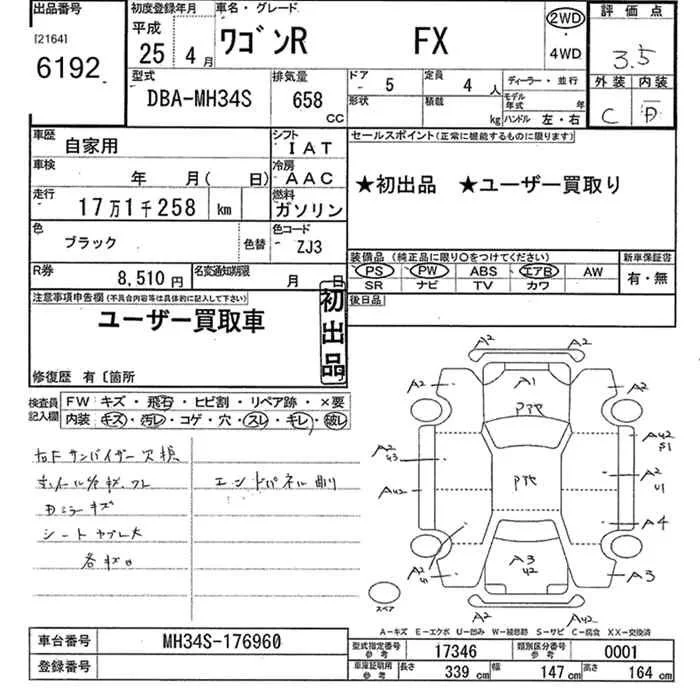 出品番号
[2164]
6192
初度登録年月
平成
25 4月
車名・グレード
ワゴンR FX
2WD
・
4WD
評価点
3.5
外装 内装
C D
型式
DBA-MH34S
排気量
658 cc
ドア 5
定員 4 人
形状
積載 kg
ディーラー・並行
モデル年式 年
ハンドル 左・右
車歴
自家用
シフト
IAT
車検
年 月( 日)
冷房
AAC
走行
17万1千258 km
燃料
ガソリン
色
ブラック
色替
色コード
ZJ3
R券
8,510円
名変通知期限
月 日
セールスポイント(正常に機能するものに限ります)
★初出品 ★ユーザー買取り
装備品(純正品に限り○をつけてください)
PS PW ABS エアB AW
SR ナビ TV カワ
新車保証書
有・無
後日品
注意事項申告欄(不具合内容等は具体的に記入して下さい)
ユーザー買取車
初出品
修復歴 有〔箇所
検査員記入欄
FW:キズ・飛石・ヒビ割・リペア跡・×要
内装:キズ・汚レ・コゲ・穴・スレ・キレ・破レ
右Fサンバイザー欠損
Dミラーキズ
シートヤブレ大
各キロ
エンドパネル凹
A2 A2
A2 A1 A2
アアセ
A2
U3
A42
S1
アアセ
A2
U1
A42
A4
A2
U1
A3
42
A3
A2 A42
スペア
A-キズ E-エクボ U-凹み W-補修跡 S-サビ C-腐食 XX-交換済
車台番号
MH34S-176960
登録番号
型式指定番号 参考
17346
類別区分番号 参考
0001
車庫証明用 参考
長さ 339 cm
幅 147 cm
高さ 164 cm